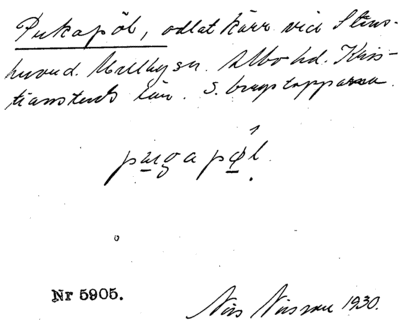 Pukapöl, odlat kärr vid Stens-
huvud. Mellby sn. Albo hd. Kris-
tianstads län. S.
pugapøl
Nr 5905.
Nils Nilsson 1930.